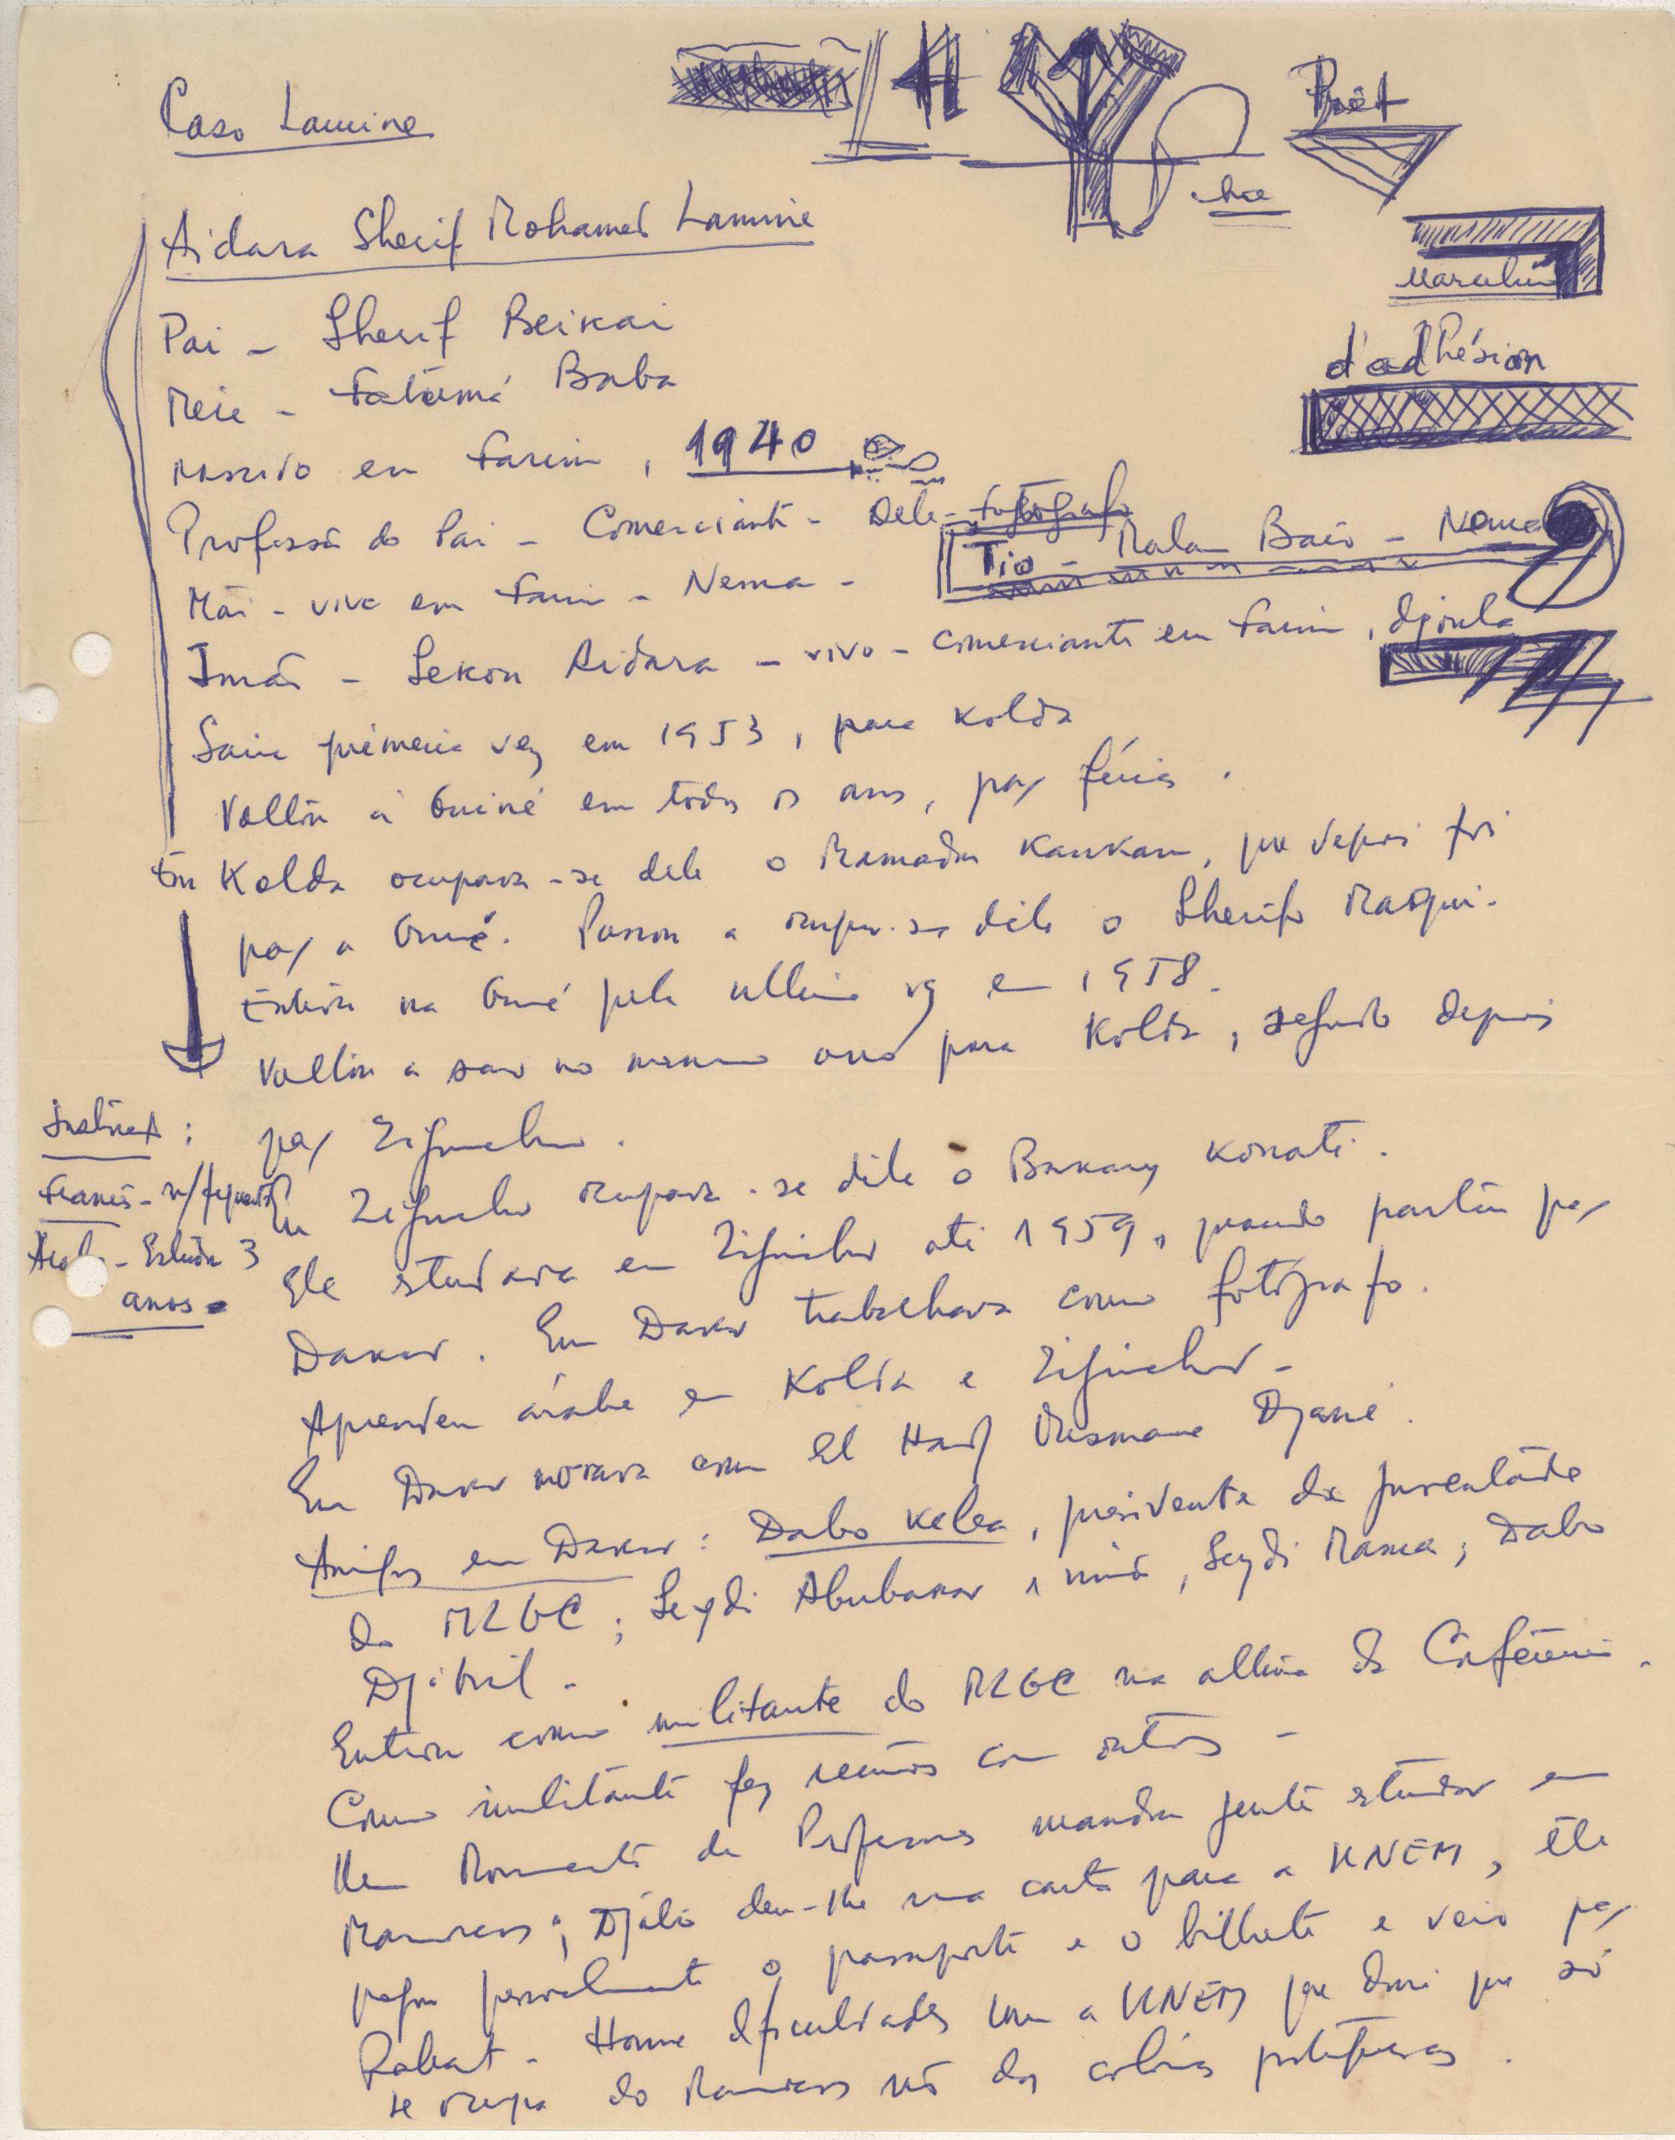 Caso Lamine
Prêt
Aidara Sherif Mohamed Lamine
Pai - Sherif Beikai
d'adhésion
Mãe - Fatumá Baba
nascido em Farim, 1940
Professão do Pai - Comerciante - Dele - fotógrafo
Tio - Malan Baio - Nema
Mãi - vive em Farim - Nema -
Irmão - Sekou Aidara - vivo - comerciante em Farim, djoula
Saiu primeira vez em 1953, para Kolda
Voltou à Guiné em todos os anos, para férias.
Em Kolda ocupava-se dele o Mamadu Kankan, que depois foi
para a Guiné. Passou a ocupar-se dele o Sherifo
Esteve na Guiné pela ultima vez em 1958.
Voltou a sair no mesmo ano para Kolda, seguindo depois
para Ziguinchor.
Instrução:
Francês - n/frequentou
Árabe - Estudou 3
anos.
Em Ziguinchor ocupava-se dele o Bakary Konaté.
Ele estudava em Ziguinchor até 1959, quando partiu para
Dakar. Em Dakar trabalhava como fotógrafo.
Aprendeu árabe em Kolda e Ziguinchor -
Em Dakar morava com El Hadj Ousmane Djané.
Amigos em Dakar: Dabo Keba, presidente da Juventude
do MLGC; Seydi Abubakar, Seydi Mama; Dabo
Djibril -
Entrou como militante do MLGC na altura da Conferência.
Como militante fez reuniões com outros -
Um Movimento de Professores mandou gente estudar em
Marrocos; Djaló deu-lhe uma carta para a UNEM, êle
pagou pessoalmente o passaporte e o bilhete e veio para
Rabat - Houve dificuldades com a UNEM que disse que só
se ocupa do Marrocos não das colónias portuguesas.